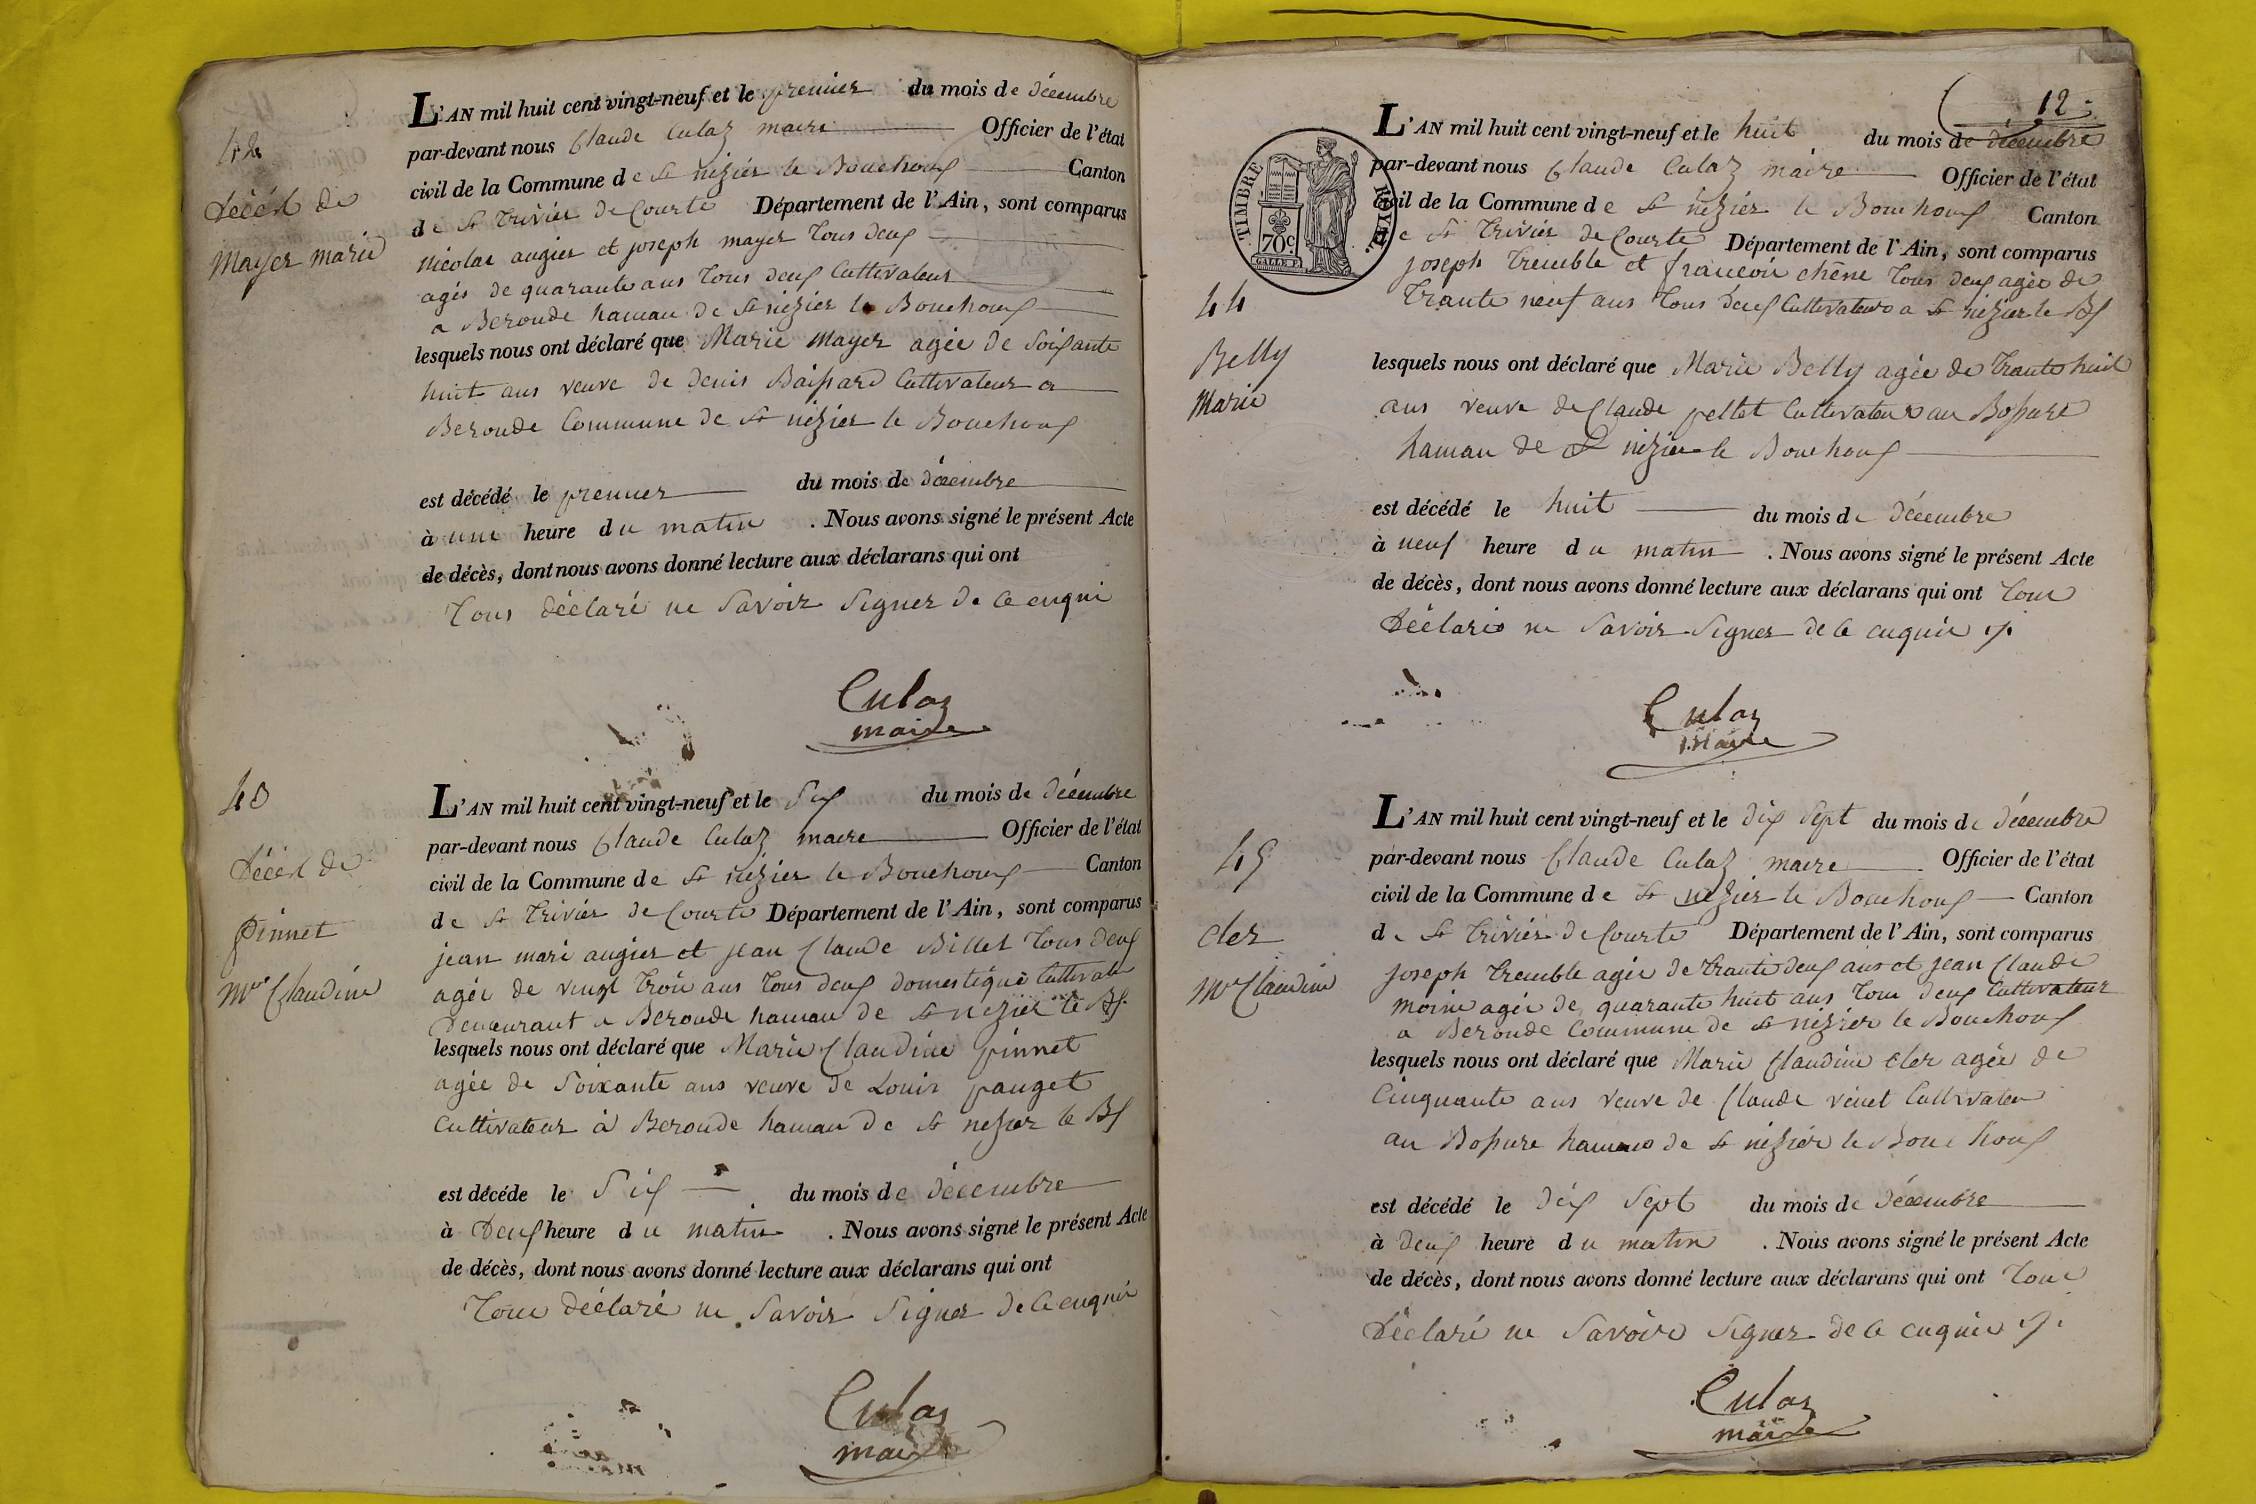 42
Décès de
Mayer marie
L'AN mil huit cent vingt-neuf et le premier du mois de décembre
par-devant nous Claude Culaz maire Officier de l'état
civil de la Commune de St nizier le Bouchoux Canton
de St Trivier de Courte Département de l'Ain, sont comparus
nicolas augier et joseph mayer tous deux
agés de quarante ans tous deux Cultivateur
a Beroude hamau de St nizier le Bouchoux
lesquels nous ont déclaré que Marie Mayer agée de soixante
huit ans veuve de denis Baissard Cultivateur a
Beroude Commune de St nizier le Bouchoux
est décédé le premier du mois de décembre
à une heure du matin . Nous avons signé le présent Acte
de décès, dont nous avons donné lecture aux déclarans qui ont
tous déclaré ne savoir signer de ce enqui
Culaz
maire
43
Décès de
pinnet
Mie Claudine
L'AN mil huit cent vingt-neuf et le six du mois de décembre
par-devant nous Claude Culaz maire Officier de l'état
civil de la Commune de St nizier le Bouchoux Canton
de St Trivier de Courte Département de l'Ain, sont comparus
jean mari augier et jean Claude Billet tous deux
agée de vingt trois ans tous deux domestique
demeurant a Beroude hamau de St nizier le Bx
lesquels nous ont déclaré que Marie Claudine pinnet
agée de soixante ans veuve de Louis pauget
Cultivateur à Beroude hamau de St nizier le Bx
est décédé le six du mois de décembre
à deux heure du matin . Nous avons signé le présent Acte
de décès, dont nous avons donné lecture aux déclarans qui ont
tous déclaré ne savoir signer de ce enquis
Culaz
maire
12
TIMBRE ROYAL
70c
44
Belly
Marie
L'AN mil huit cent vingt-neuf et le huit du mois de décembre
par-devant nous Claude Culaz maire Officier de l'état
civil de la Commune de St nizier le Bouchoux Canton
de St Trivier de Courte Département de l'Ain, sont comparus
joseph tremble et françois chêne tous deux agée de
trante neuf ans tous deux Cultivateurs a St nizier le Bx
lesquels nous ont déclaré que Marie Belly agée de trante huit
ans veuve de Claude pellet Cultivateur au Bossure
hamau de St nizier le Bouchoux
est décédé le huit du mois de décembre
à neuf heure du matin . Nous avons signé le présent Acte
de décès, dont nous avons donné lecture aux déclarans qui ont tous
déclaré ne savoir signer de ce enquis
Culaz
Maire
45
cler
Mie Claudine
L'AN mil huit cent vingt-neuf et le dix sept du mois de décembre
par-devant nous Claude Culaz maire Officier de l'état
civil de la Commune de St nizier le Bouchoux Canton
de St Trivier de Courte Département de l'Ain, sont comparus
joseph tremble agée de trante deux ans et jean Claude
moine agée de quarante huit ans tous deux Cultivateur
a Beroude Commune de St nizier le Bouchoux
lesquels nous ont déclaré que Marie Claudine cler agée de
Cinquante ans veuve de Claude venet Cultivateu
au Bossure hamau de St nizier le Bouchoux
est décédé le dix sept du mois de décembre
à deux heure du matin . Nous avons signé le présent Acte
de décès, dont nous avons donné lecture aux déclarans qui ont tous
déclaré ne savoir signer de ce enquis
Culaz
maire